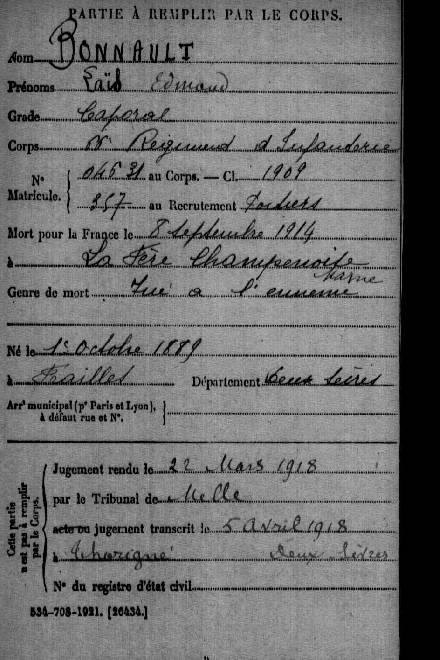 PARTIE À REMPLIR PAR LE CORPS.
Nom BONNAULT
Prénoms Edmond
Grade Caporal
Corps Regiment d Infanterie
N° Matricule. { au Corps. — Cl. 1909
357 au Recrutement Poitiers
Mort pour la France le 8 septembre 1914
à La Fère Champenoise
Marne
Genre de mort Tué a l'ennemi
Né le 1er Octobre 1889
à Département Deux Sèvres
Arrt municipal (pr Paris et Lyon), à défaut rue et N°.
Cette partie n'est pas à remplir par le Corps.
Jugement rendu le 22 Mars 1918
par le Tribunal de Melle
acte ou jugement transcrit le 5 Avril 1918
à Thorigné Deux Sèvres
N° du registre d'état civil
534-708-1921. [26434.]